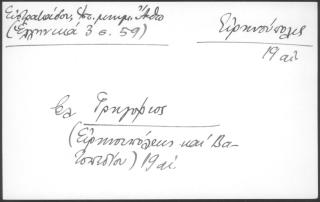 Εὐστρατιάδου, Ἱστ. μνημ. Ἄθω
(Ἑλληνικά 3 σ. 59)
Εἰρηνούπολις
19 αἰ.
βλ Γρηγόριος
(Εἰρηνουπόλεως καὶ Βα-
τοπεδίου) 19 αἰ.